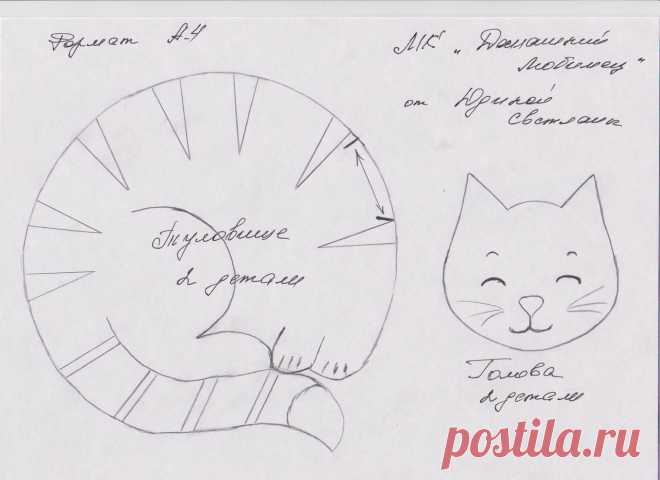 Формат А-4
МК „Домашний
любимец"
от Юдиной
Светланы
Туловище
2 детали
Голова
2 детали
postila.ru